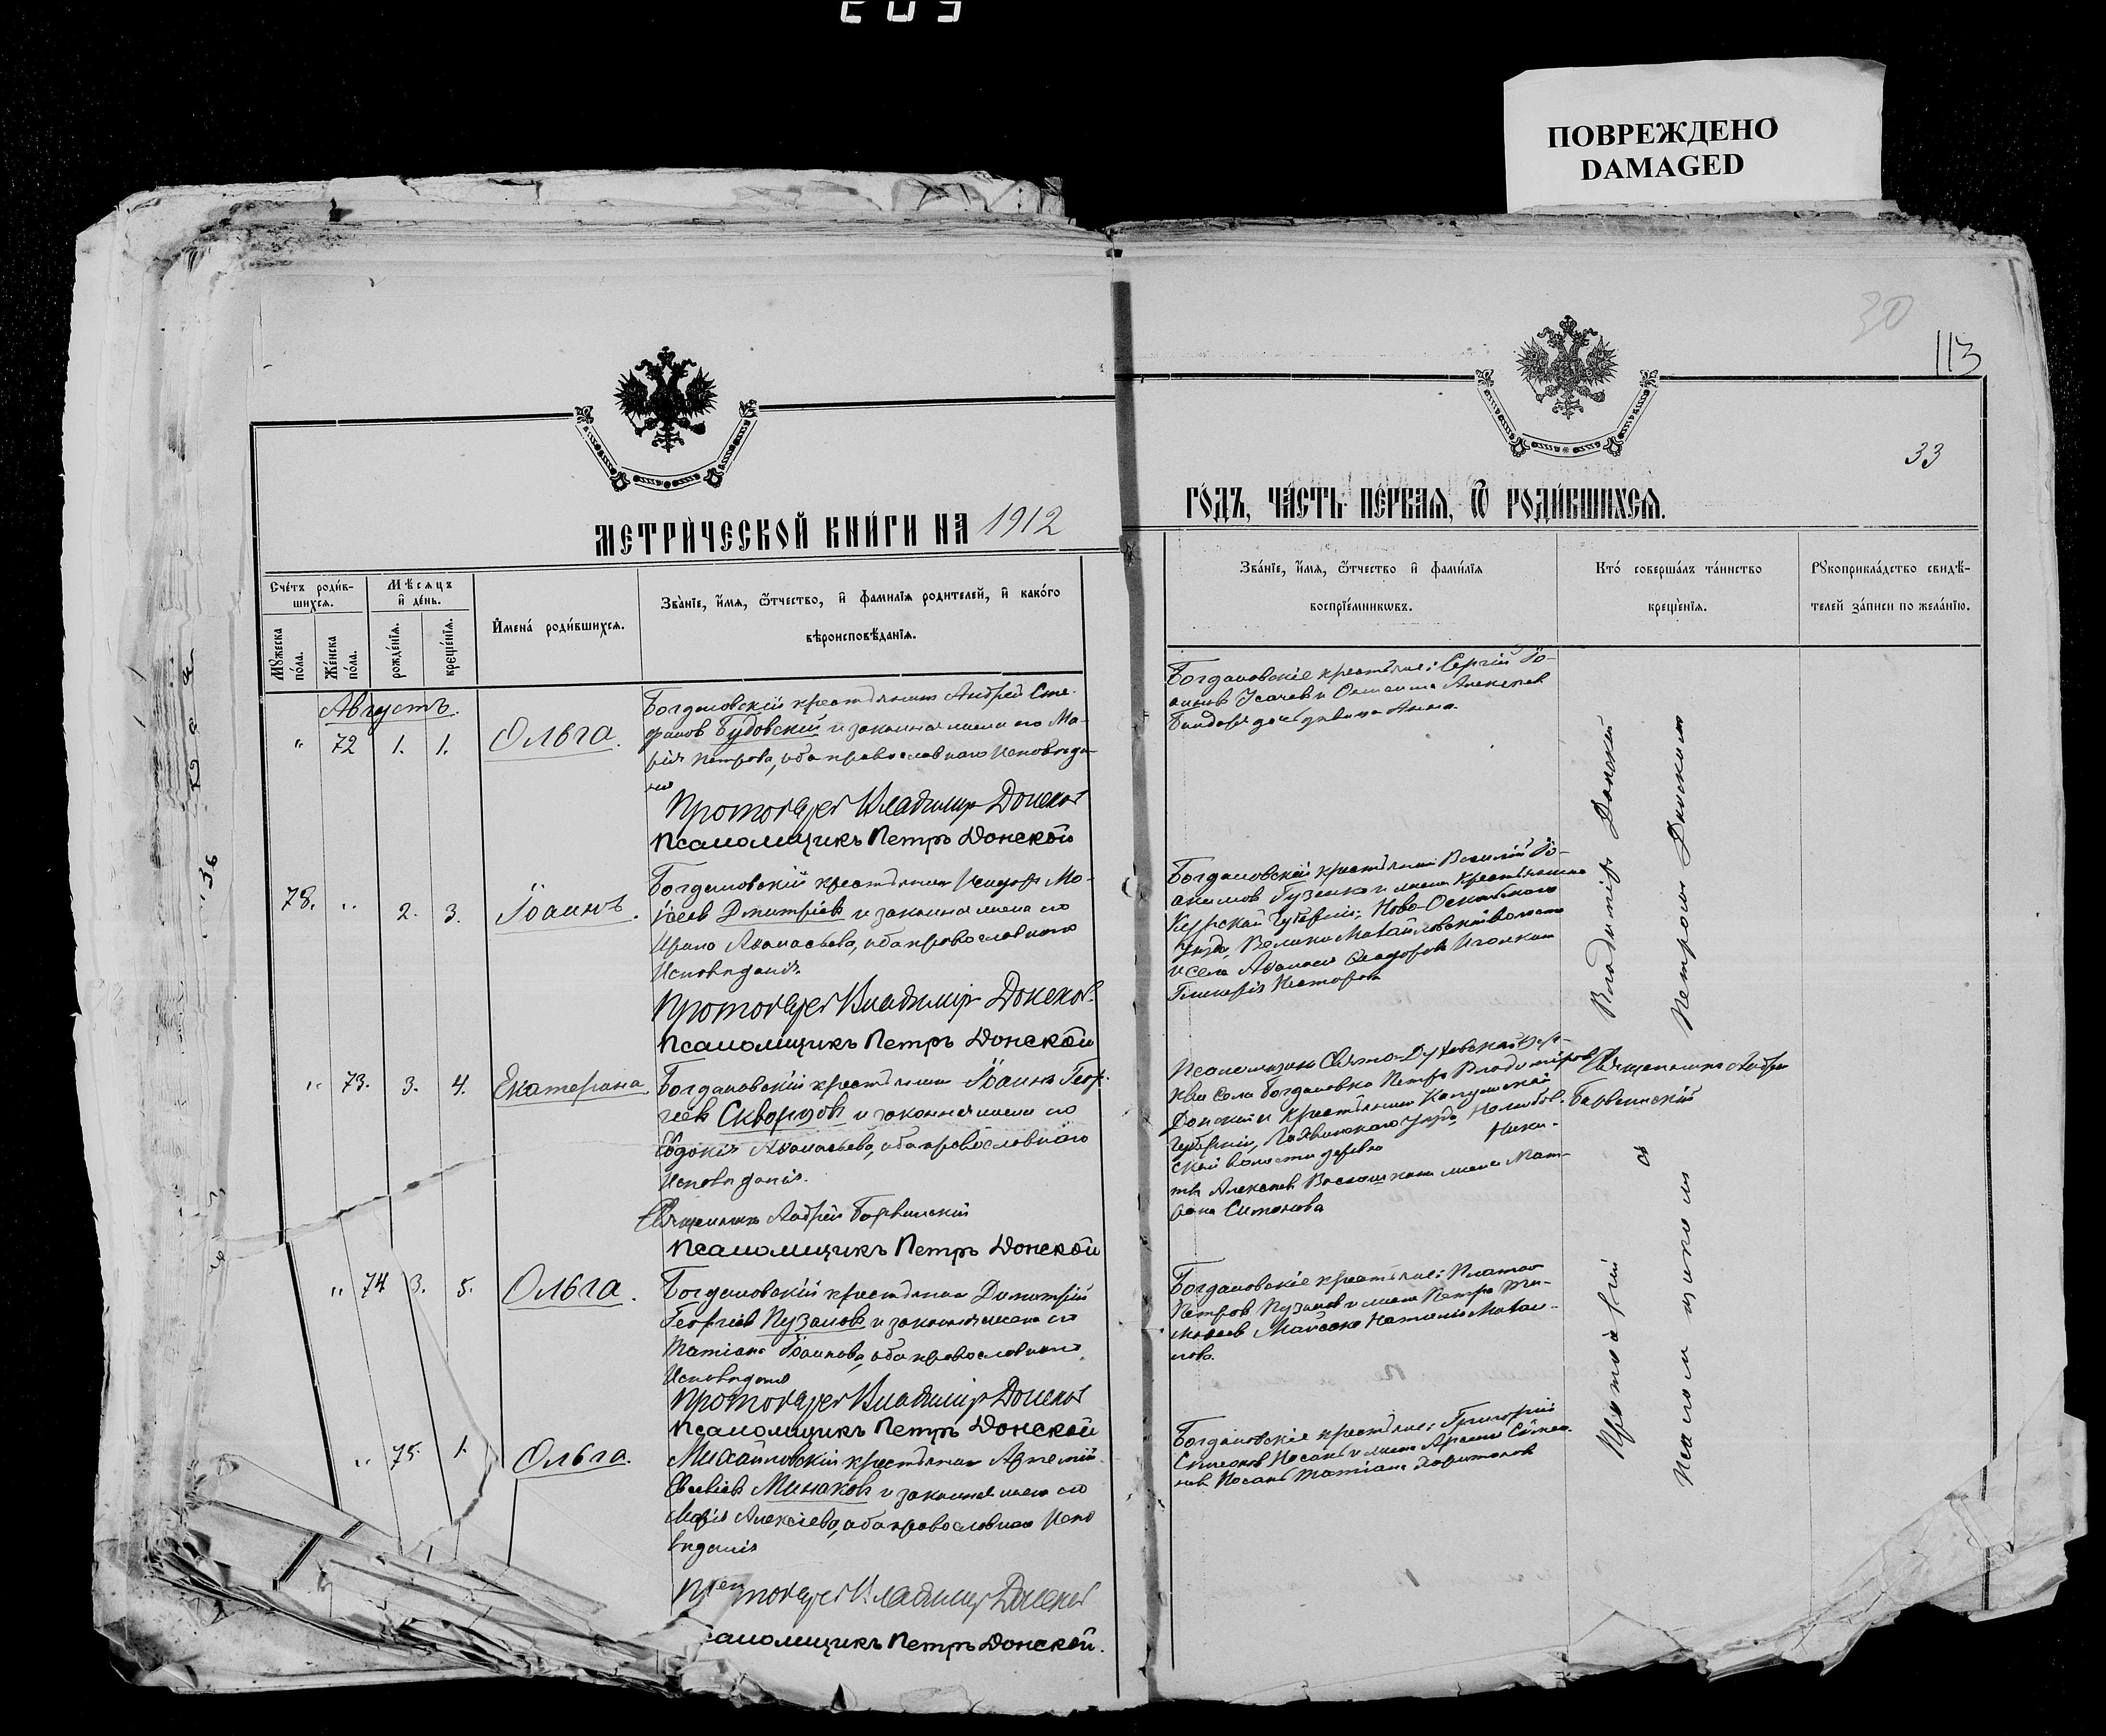 ПОВРЕЖДЕНО
DAMAGED
30
113
33
МЕТРИ́ЧЕСКОЙ КНИ́ГИ НА 1912
ГО́ДЪ, ЧА́СТЬ ПЕ́РВАЯ, Ѿ РОДИ́ВШИХСЯ.
Сче́тъ роди́в-
шихся.
Му́жеска
по́ла.
Же́нска
по́ла.
Мѣ́сяцъ
и҆ де́нь.
рожде́нїя.
креще́нїя.
И҆мена́ роди́вшихся.
Зва́нїе, и҆́мя, ѻ҆́тчество, и҆ фами́лїя роди́телей, и҆ како́го
вѣроисповѣ́данїя.
Зва́нїе, и҆́мя, ѻ҆́тчество и҆ фами́лїя
воспрїе́мникѡвъ.
Кто́ соверша́лъ та́инство
креще́нїя.
Рꙋкоприкла́дство свидѣ́-
телей за́писи по жела́нїю.
Августъ.
" 72 1. 1. Ольга.
Богдановскій крестьянинъ Андрей Сте-
фановъ Будовскій и законная жена его Ма-
рія Петрова, оба православнаго исповѣда-
нія
Протоіерей Владимір Донской
Псаломщикъ Петръ Донской
Богдановскіе крестьяне: Сергій Іо-
анновъ Усачев и Алексѣев
дочь дѣвица Анна.
78. " 2. 3. Іоаннъ.
Богдановскій крестьянинъ Исидоръ Мо-
исеев Дмитріевъ и законная жена его
Ирина Аѳанасьева, оба православнаго
Исповѣданія.
Протоіерей Владимір Донской
Псаломщикъ Петръ Донской
Богдановскій крестьянин Василій Іо-
акимов Гузенко и жена крестьянина
Курской Губерніи, Ново-Оскольского
Уѣзда, Велико Михайловской волости
и села Аѳанасія Ѳеодорова
Гликерія Несторова
" 73. 3. 4. Екатерина
Богдановскій крестьянин Іоаннъ Геор-
гіевъ Скворцовъ и законная жена его
Евдокія Аѳанасьева, оба православнаго
Исповѣданія.
Священникъ Андрей Барвинскій
Псаломщикъ Петръ Донской
Псаломщикъ Свято-Духовской цер-
кви села Богдановки Петръ Владиміров
Донской и крестьянина Калужской
Губерніи, Лихвинскаго уѣзда,
ской волости деревни Ники-
ты Алексѣева жена Мат-
рона Симонова
Священникъ Андрей
Барвинскій
" 74 3. 5. Ольга.
Богдановскій крестьянин Димитрій
Георгіевъ Пузановъ и законная жена его
Татіана Іоаннова, оба православнаго
Исповѣданія
Протоіерей Владимір Донской
Псаломщикъ Петръ Донской
Богдановскіе крестьяне: Платон
Петров Пузанов и жена Петра Ти-
моѳеев Наталія Михаи-
лова.
" 75. 1. Ольга.
Михайловскій крестьянин Артемій
Евсевіевъ Минаковъ и законная жена его
Марія Алексіева, оба православнаго Испо
вѣданія
Протоіерей Владимір Донской
саломщикъ Петръ Донской.
Богдановскіе крестьяне: Григорій
Симеонов Косакъ и жена Симео-
нова Косакъ Татіана Харитонова
Протоіерей Владиміръ Донской
съ
Псаломщикомъ Петромъ Донскимъ